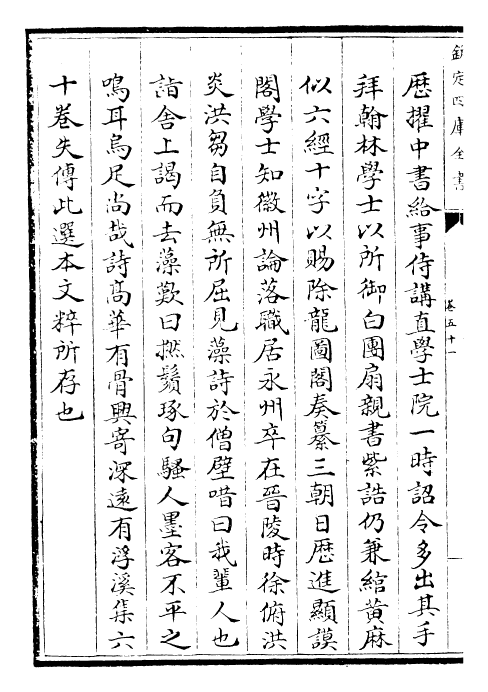 欽定四庫全書
卷五十一
歴擢中書給事侍講直學士院一時詔令多出其手
拜翰林學士以所御白團扇親書紫誥仍兼綰黄麻
似六經十字以賜除龍圖閣奏纂三朝日歴進顯謨
閣學士知徽州論落職居永州卒在晉陵時徐俯洪
炎洪芻自負無所屈見藻詩於僧壁唶曰我輩人也
詣舍上謁而去藻歎曰撚鬚琢句騷人墨客不平之
鳴耳烏足尚哉詩髙華有骨興寄深遠有浮溪集六
十卷失傳此選本文粹所存也